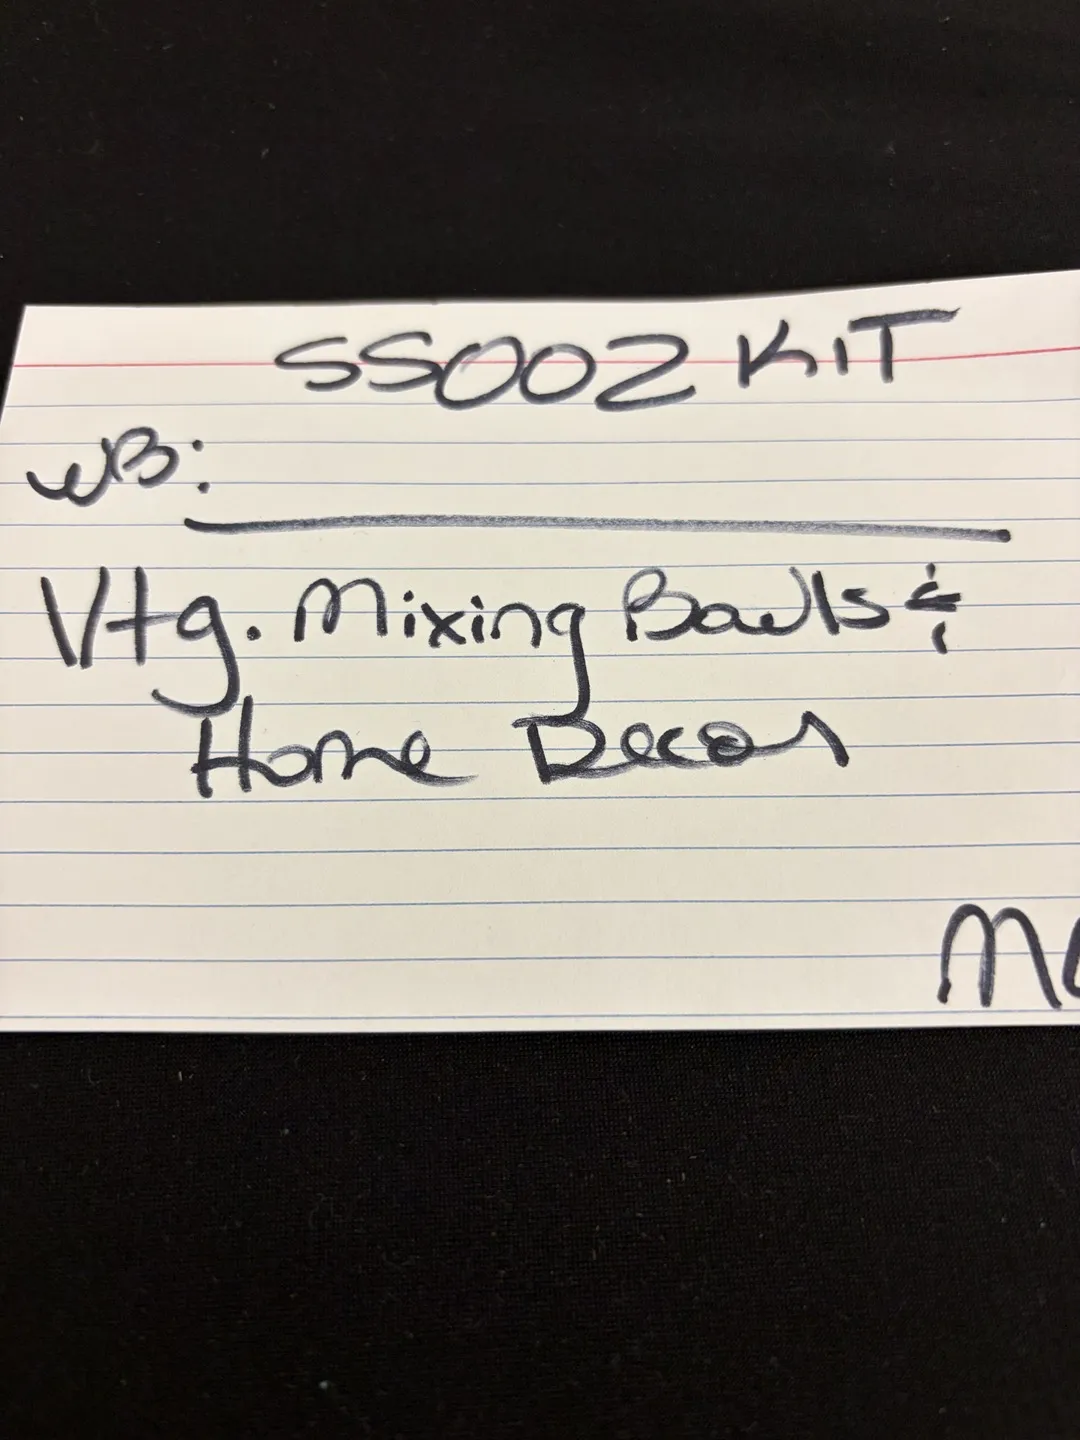 SS002 KIT
WB:
Vtg. Mixing Bowls &
Home Decor